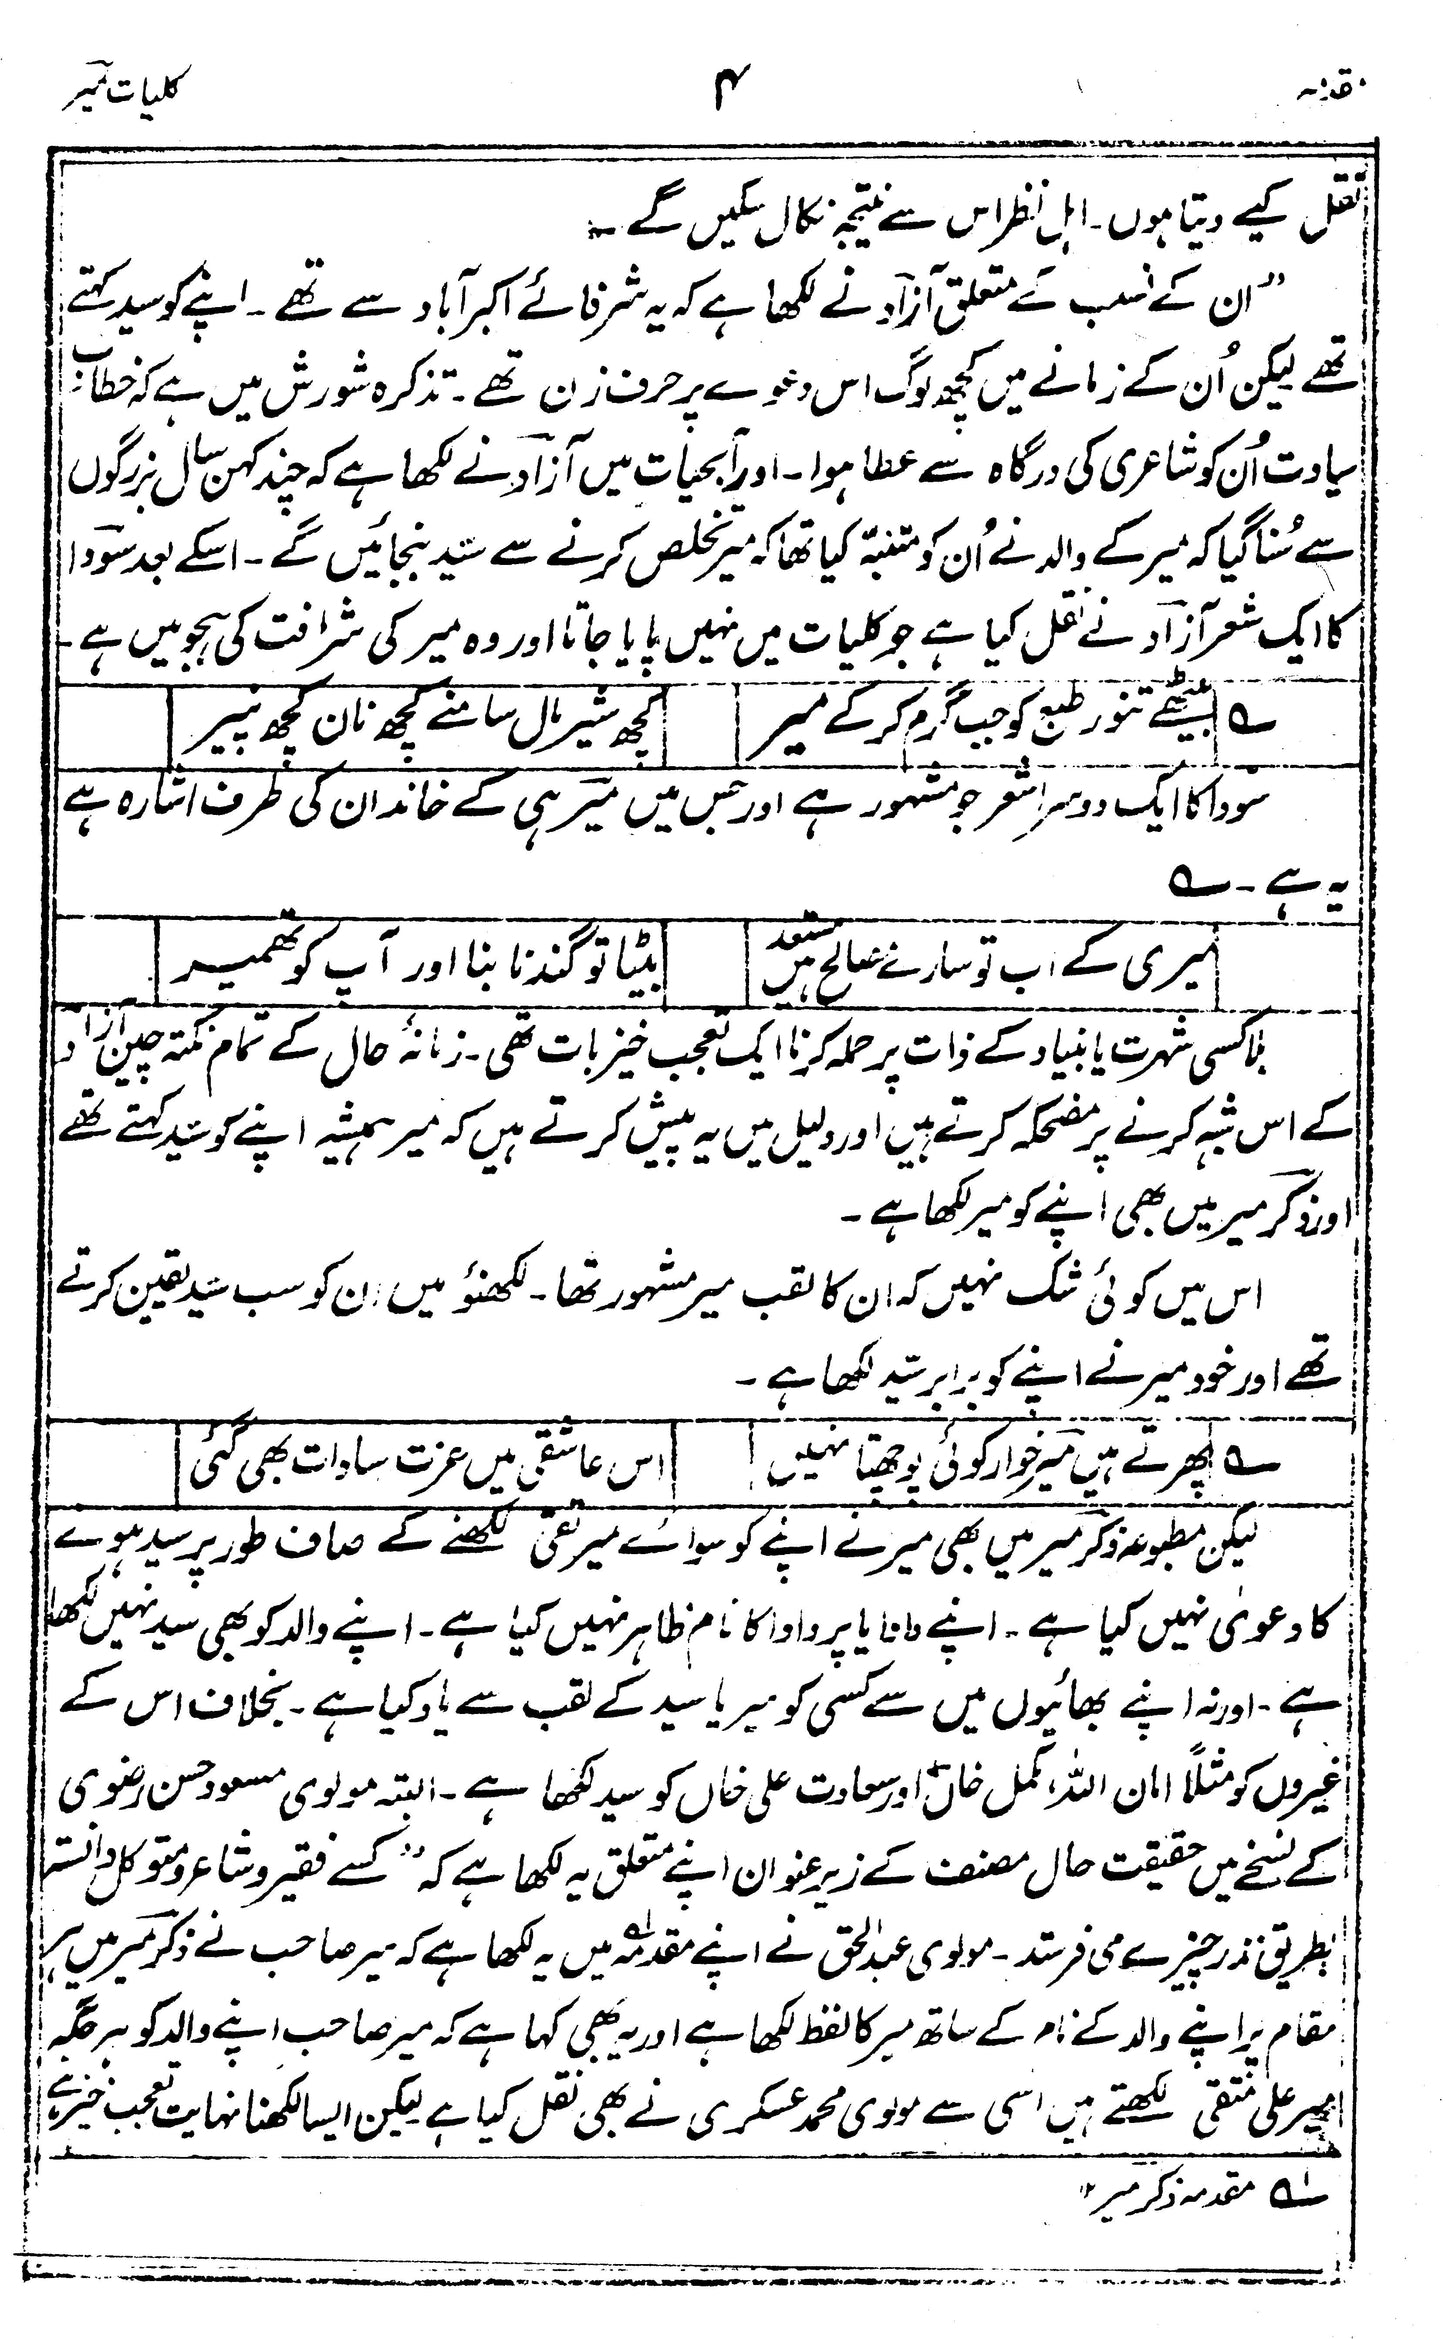 مقدمہ ۴ کلیات میر
نقل کیے دیتا ہوں۔ اہل نظر اس سے نتیجہ نکال سکیں گے ۔
”ان کے نسب کے متعلق آزاد نے لکھا ہے کہ یہ شرفائے اکبر آباد سے تھے ۔ اپنے کو سید کہتے
تھے لیکن اُن کے زمانے میں کچھ لوگ اس دعوے پر حرف زن تھے ۔ تذکرہ شورش میں ہے کہ خطاب
سیادت اُن کو شاعری کی درگاہ سے عطا ہوا ۔ اور آبحیات میں آزاد نے لکھا ہے کہ چند کہن سال بزرگوں
سے سُنا گیا کہ میر کے والد نے اُن کو متنبہ کیا تھا کہ میر تخلص کرنے سے سیّد بنجائیں گے ۔ اسکے بعد سودا
کا ایک شعر آزاد نے نقل کیا ہے جو کلیات میں نہیں پایا جاتا اور وہ میر کی شرافت کی ہجو میں ہے ۔
؎ بیٹھے تنور طبع کو جب گرم کر کے میر کچھ شیرمال سامنے کچھ نان کچھ پنیر
سودا کا ایک دوسرا شعر جو مشہور ہے اور جس میں میر ہی کے خاندان کی طرف اشارہ ہے
یہ ہے ۔ ؎
میری کے اب تو سارے مصالح ہیں مستعد بیٹا تو گندنا بنا اور آپ کوتھمیر
بلا کسی شہرت یا بنیاد کے ذات پر حملہ کرنا ایک تعجب خیز بات تھی ۔ زمانۂ حال کے تمام نکتہ چین آزاد
کے اس شبہ کرنے پر مضحکہ کرتے ہیں اور دلیل میں یہ پیش کرتے ہیں کہ میر ہمیشہ اپنے کو سیّد کہتے تھے
اور ذکر میر میں بھی اپنے کو میر لکھا ہے ۔
اس میں کوئی شک نہیں کہ ان کا لقب میر مشہور تھا ۔ لکھنؤ میں ان کو سب سیّد یقین کرتے
تھے اور خود میر نے اپنے کو برابر سیّد لکھا ہے ۔
؎ پھرتے ہیں میر خوار کوئی پوچھتا نہیں اس عاشقی میں عزت سادات بھی گئی
لیکن مطبوعہ ذکر میر میں بھی میر نے اپنے کو سوائے میر تقی لکھنے کے صاف طور پر سید ہونے
کا دعویٰ نہیں کیا ہے ۔ اپنے دادا یا پردادا کا نام ظاہر نہیں کیا ہے ۔ اپنے والد کو بھی سید نہیں لکھا
ہے ۔ اور نہ اپنے بھائیوں میں سے کسی کو میر یا سید کے لقب سے یاد کیا ہے ۔ بخلاف اس کے
غیروں کو مثلاً امان اللہ، مکمل خاں اور سعادت علی خاں کو سید لکھا ہے ۔ البتہ مولوی مسعود حسن رضوی
کے نسخے میں حقیقت حال مصنف کے زیر عنوان اپنے متعلق یہ لکھا ہے کہ ” کسے فقیر و شاعر و متوکل دانستہ
بطریق نذر چیزے می فرستد ۔ مولوی عبدالحق نے اپنے مقدمہ؎۱ میں یہ لکھا ہے کہ میر صاحب نے ذکر میر میں ہر
مقام پر اپنے والد کے نام کے ساتھ میر کا لفظ لکھا ہے اور یہ بھی کہا ہے کہ میر صاحب اپنے والد کو ہر جگہ
میر علی متقی لکھتے ہیں اسی سے مولوی محمد عسکری نے بھی نقل کیا ہے لیکن ایسا لکھنا نہایت تعجب خیز ہے
؎۱ مقدمہ ذکر میر ۱۲